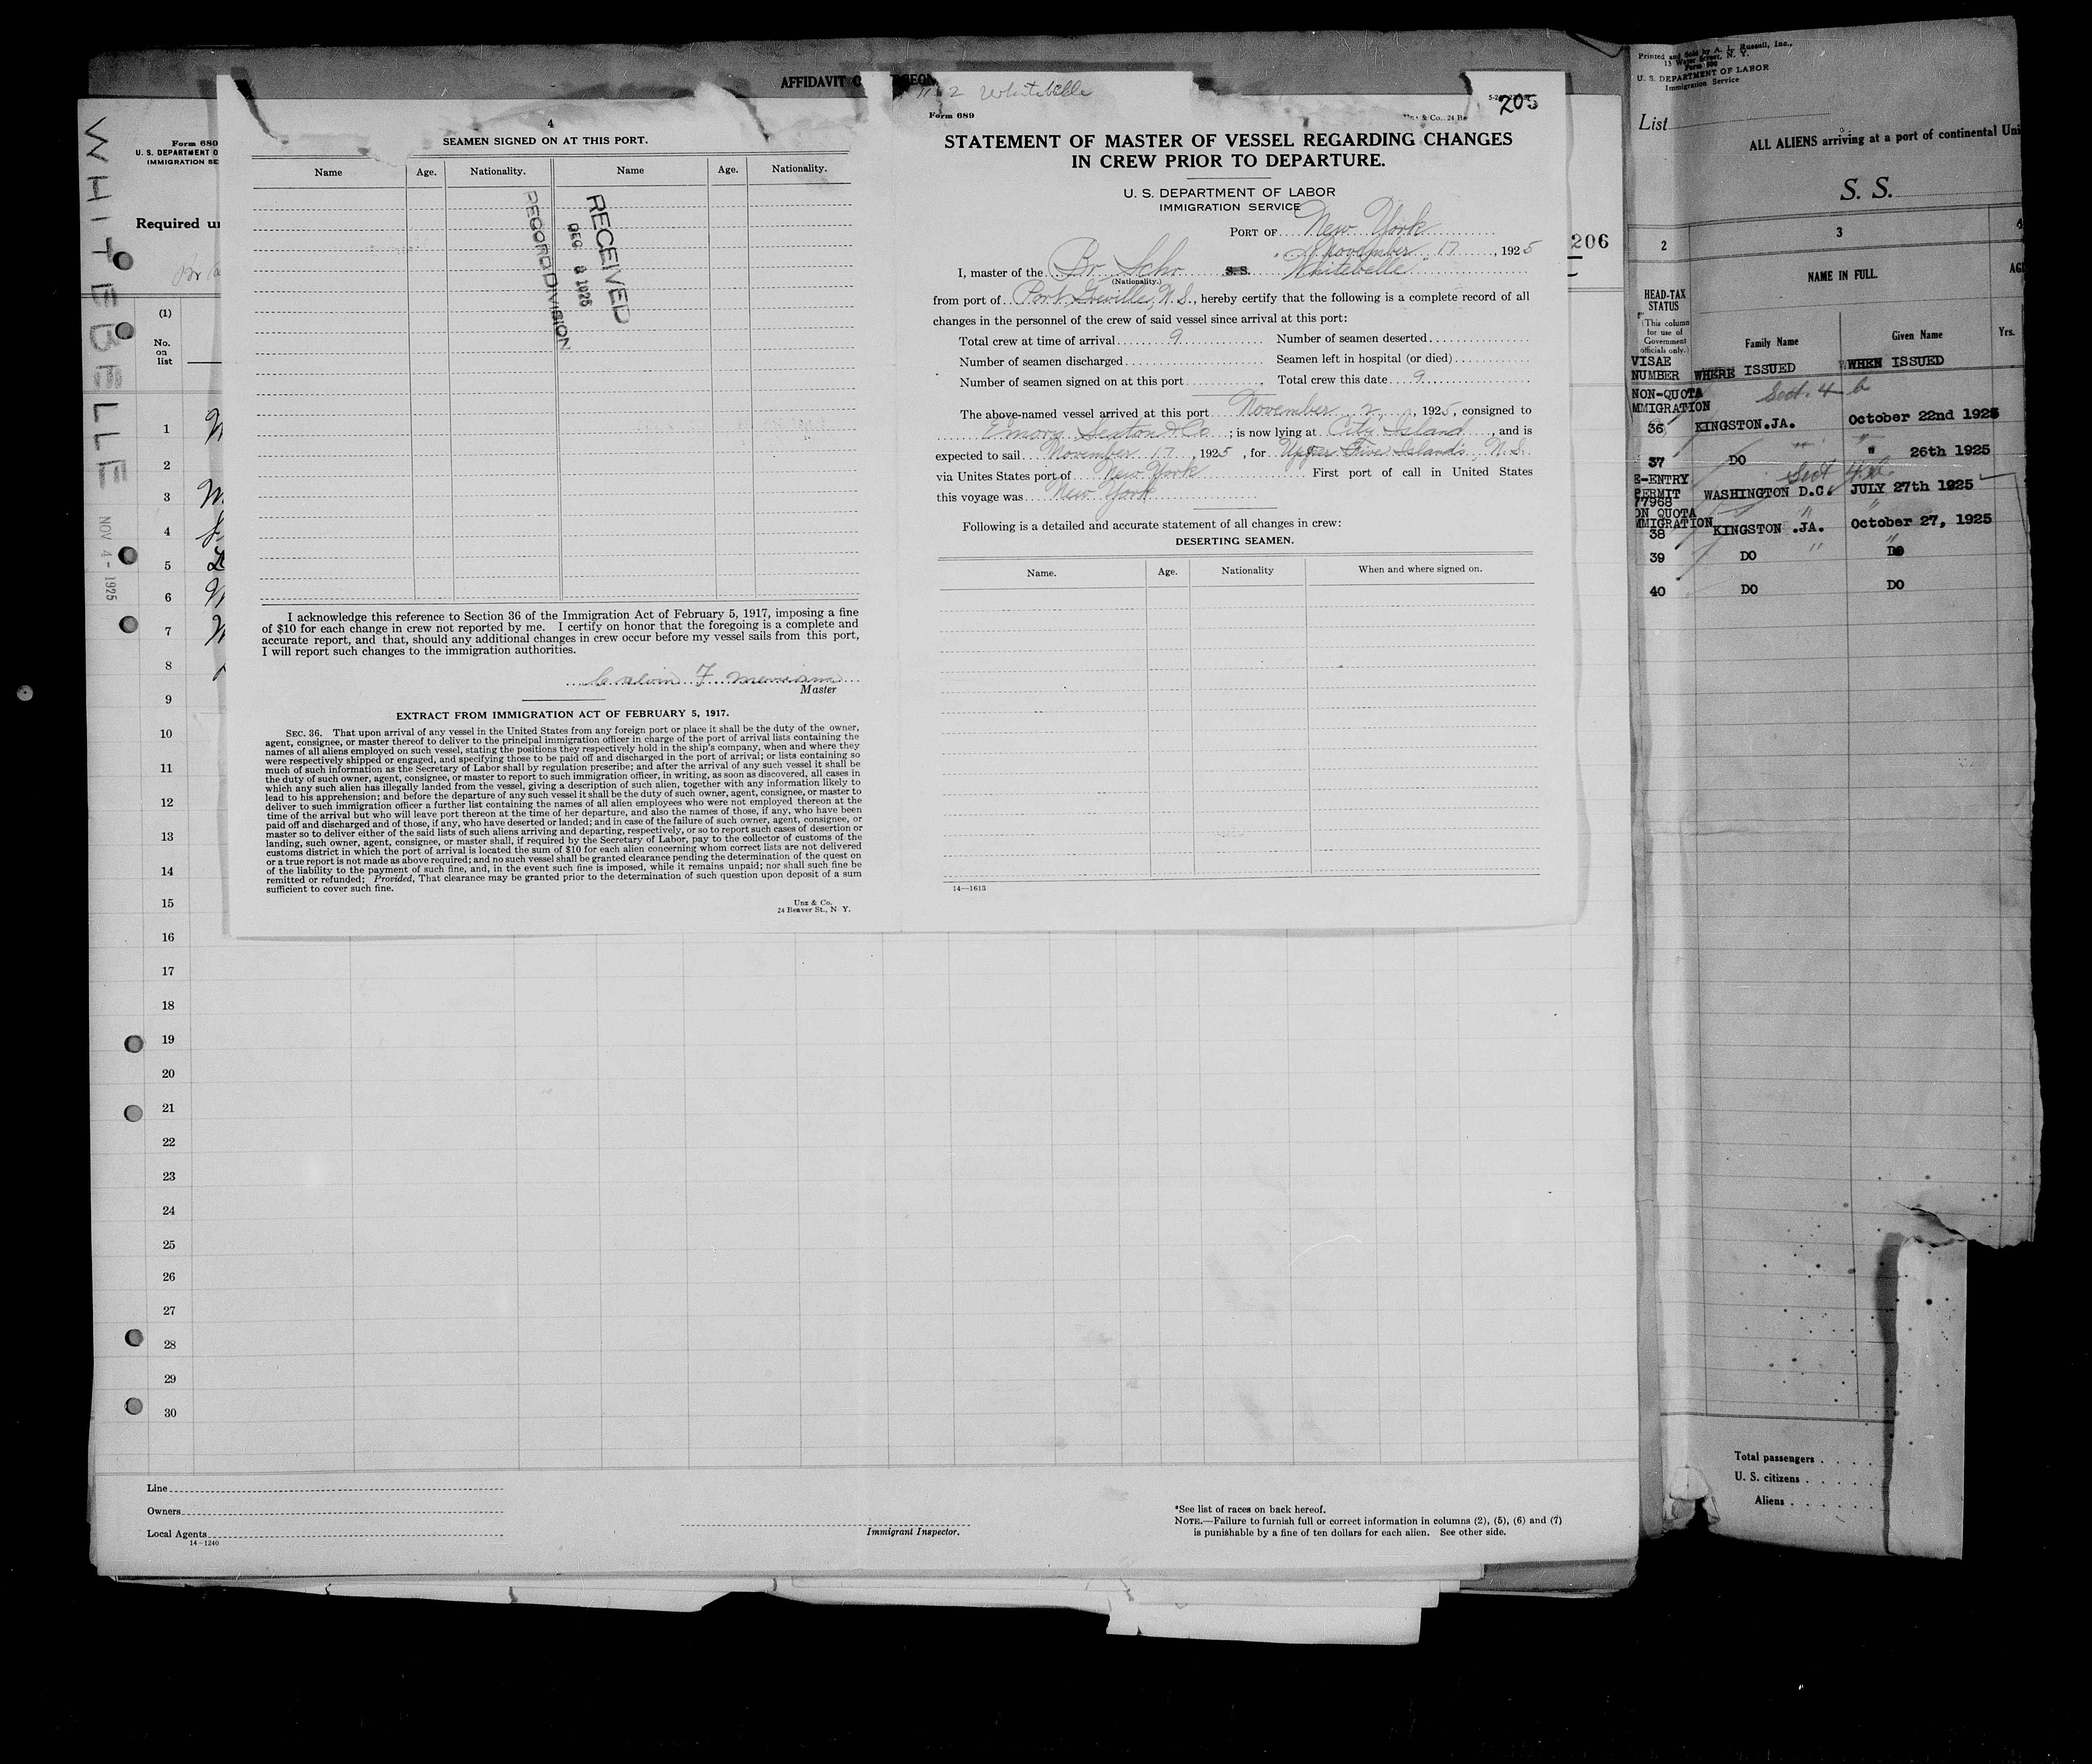 AFFIDAVIT O
GEON
WHITEBELLE
NOV 4 - 1925
Form 680
U. S. DEPARTMENT O
IMMIGRATION SE
Required un
(1)
No.
on
list
1
2
3
4
5
6
7
8
9
10
11
12
13
14
15
16
17
18
19
20
21
22
23
24
25
26
27
28
29
30
Line
Owners
Local Agents
14-1240
Immigrant Inspector.
*See list of races on back hereof.
NOTE.—Failure to furnish full or correct information in columns (2), (5), (6) and (7)
is punishable by a fine of ten dollars for each alien. See other side.
206
4
SEAMEN SIGNED ON AT THIS PORT.
Name Age. Nationality. Name Age. Nationality.
RECEIVED
DEC 8 1925
RECORD DIVISION
I acknowledge this reference to Section 36 of the Immigration Act of February 5, 1917, imposing a fine
of $10 for each change in crew not reported by me. I certify on honor that the foregoing is a complete and
accurate report, and that, should any additional changes in crew occur before my vessel sails from this port,
I will report such changes to the immigration authorities.
Calvin F
Master
EXTRACT FROM IMMIGRATION ACT OF FEBRUARY 5, 1917.
SEC. 36. That upon arrival of any vessel in the United States from any foreign port or place it shall be the duty of the owner,
agent, consignee, or master thereof to deliver to the principal immigration officer in charge of the port of arrival lists containing the
names of all aliens employed on such vessel, stating the positions they respectively hold in the ship's company, when and where they
were respectively shipped or engaged, and specifying those to be paid off and discharged in the port of arrival; or lists containing so
much of such information as the Secretary of Labor shall by regulation prescribe; and after the arrival of any such vessel it shall be
the duty of such owner, agent, consignee, or master to report to such immigration officer, in writing, as soon as discovered, all cases in
which any such alien has illegally landed from the vessel, giving a description of such alien, together with any information likely to
lead to his apprehension; and before the departure of any such vessel it shall be the duty of such owner, agent, consignee, or master to
deliver to such immigration officer a further list containing the names of all alien employees who were not employed thereon at the
time of the arrival but who will leave port thereon at the time of her departure, and also the names of those, if any, who have been
paid off and discharged and of those, if any, who have deserted or landed; and in case of the failure of such owner, agent, consignee, or
master so to deliver either of the said lists of such aliens arriving and departing, respectively, or so to report such cases of desertion or
landing, such owner, agent, consignee, or master shall, if required by the Secretary of Labor, pay to the collector of customs of the
customs district in which the port of arrival is located the sum of $10 for each alien concerning whom correct lists are not delivered
or a true report is not made as above required; and no such vessel shall be granted clearance pending the determination of the quest on
of the liability to the payment of such fine, and, in the event such fine is imposed, while it remains unpaid; nor shall such fine be
remitted or refunded; Provided, That clearance may be granted prior to the determination of such question upon deposit of a sum
sufficient to cover such fine.
Unz & Co.
24 Beaver St., N Y.
11-2 Whitebelle
205
Form 689
Unz & Co., 24 Be
STATEMENT OF MASTER OF VESSEL REGARDING CHANGES
IN CREW PRIOR TO DEPARTURE.
U. S. DEPARTMENT OF LABOR
IMMIGRATION SERVICE
PORT OF New York
November 17, 1925
I, master of the Br Schr S.S. "Whitebelle"
(Nationality.)
from port of Port Greville, N.S., hereby certify that the following is a complete record of all
changes in the personnel of the crew of said vessel since arrival at this port:
Total crew at time of arrival 9 Number of seamen deserted
Number of seamen discharged Seamen left in hospital (or died)
Number of seamen signed on at this port Total crew this date 9
The above-named vessel arrived at this port November 2, 1925, consigned to
Emory Sexton & Co ; is now lying at City Island, and is
expected to sail November 17, 1925, for Upper Five Islands, N.S.
via Unites States port of New York First port of call in United States
this voyage was New York
Following is a detailed and accurate statement of all changes in crew:
DESERTING SEAMEN.
Name. Age. Nationality When and where signed on.
14—1613
Printed and Sold by A. L. Russell, Inc.,
13 Water Street, N. Y.
Form 500
U. S. DEPARTMENT OF LABOR
Immigration Service
List
ALL ALIENS arriving at a port of continental Uni
S. S.
2 3 4
HEAD-TAX
STATUS
(This column
for use of
Government
officials only.)
NAME IN FULL.
AG
Family Name Given Name Yrs.
VISAE
NUMBER WHERE ISSUED WHEN ISSUED
NON-QUOTA Sect. 4 b
MMIGRATION
36 KINGSTON.JA. October 22nd 1925
37 DO " 26th 1925
E-ENTRY Sect 4 b
PERMIT
77968 WASHINGTON D.C. JULY 27th 1925
ON QUOTA
MMIGRATION
38 KINGSTON .JA. October 27, 1925
39 DO " DO
40 DO DO
Total passengers
U. S. citizens
Aliens